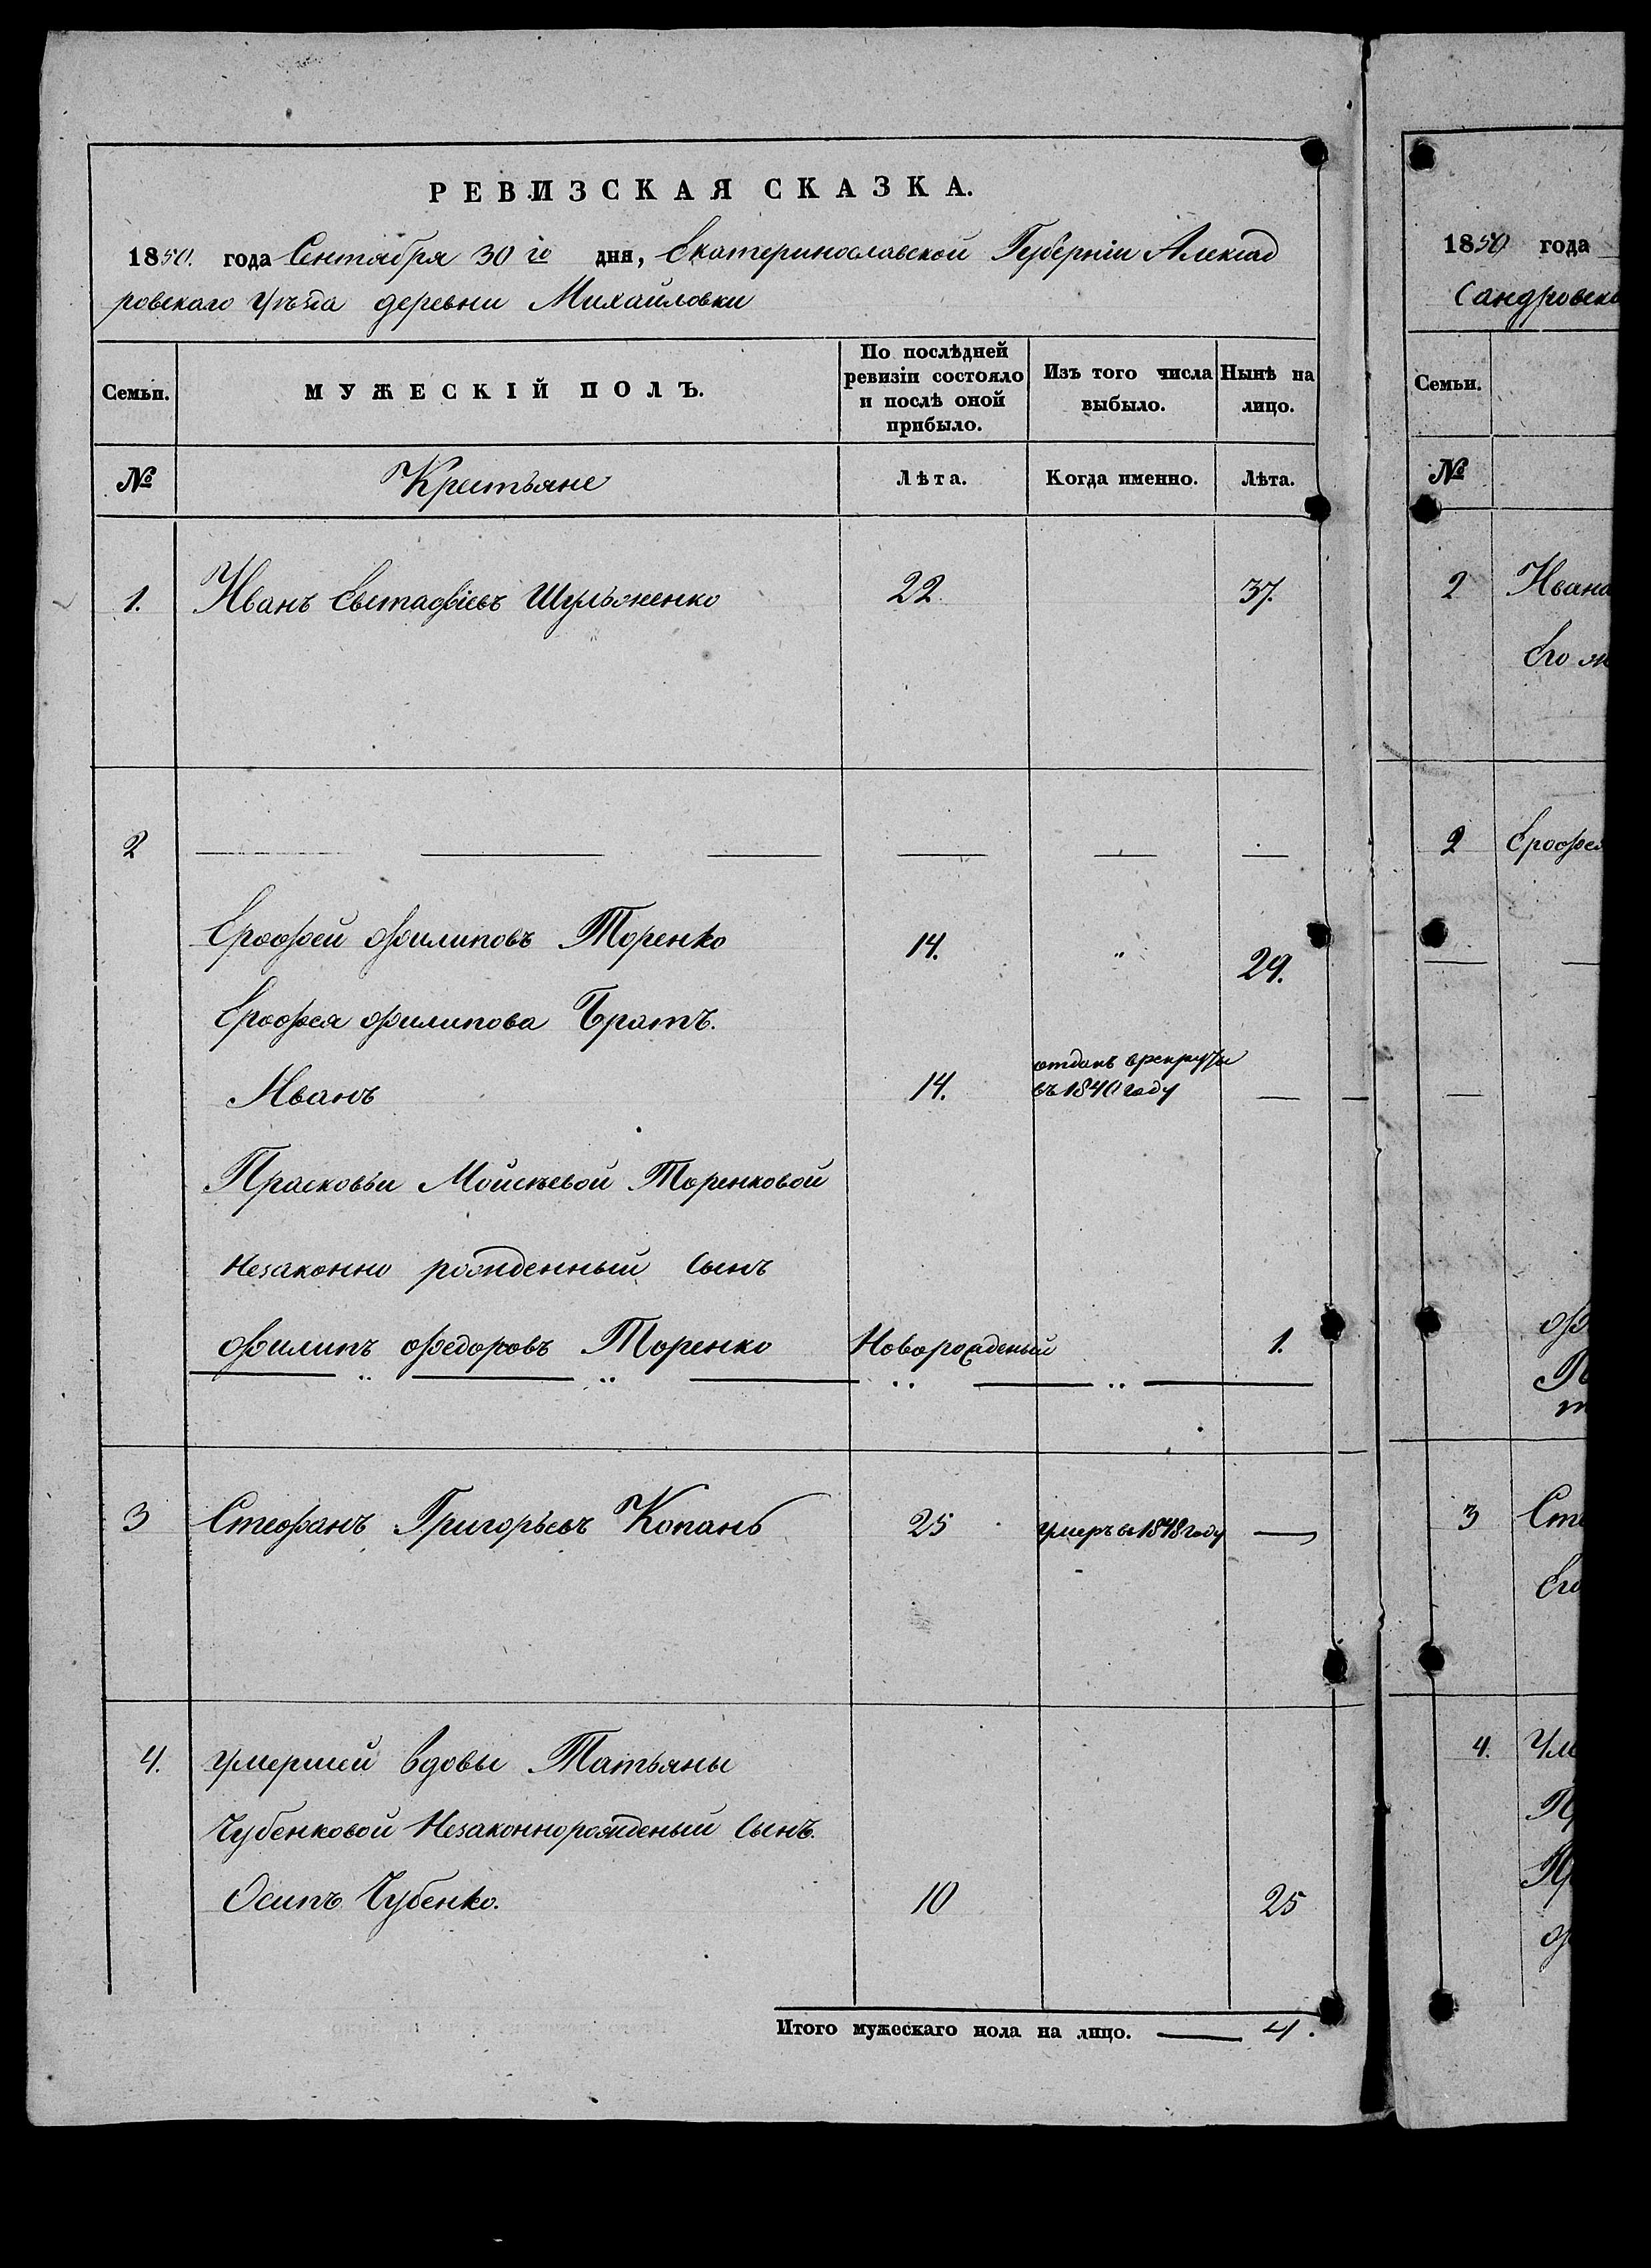 РЕВИЗСКАЯ СКАЗКА.
1850. года Сентября 30го дня, Екатеринославской Губерніи Алексад
ровскаго Уѣзда деревни Михайловки
Семьи.
МУЖЕСКІЙ ПОЛЪ.
По послѣдней ревизіи состояло и послѣ оной прибыло.
Изъ того числа выбыло.
Нынѣ на лицо.
№ Крестьяне Лѣта. Когда именно. Лѣта.
1. Иванъ Евстафіевъ Шульженко 22 37.
2
Ерофей Филиповъ Торенко 14. " 29.
Ерофея Филипова Братъ.
Иванъ 14. отданъ врекруты
въ 1840 году —
Прасковьи Мойсѣевой Торенковой
незаконно рожденный сынъ
Филипъ Федоровъ Торенко Новорожденый 1.
3 Стефанъ Григорьевъ Копань 25 умеръ въ 1848 году —
4. Умершей вдовы Татьяны
Чубенковой Незаконнорожденый сынъ.
Осипъ Чубенко. 10 25
Итого мужескаго пола на лицо. — 4.
1850 года
сандровска
Семьи.
№
2 Ивана
Его
2 Ерофея
3
Его
4.